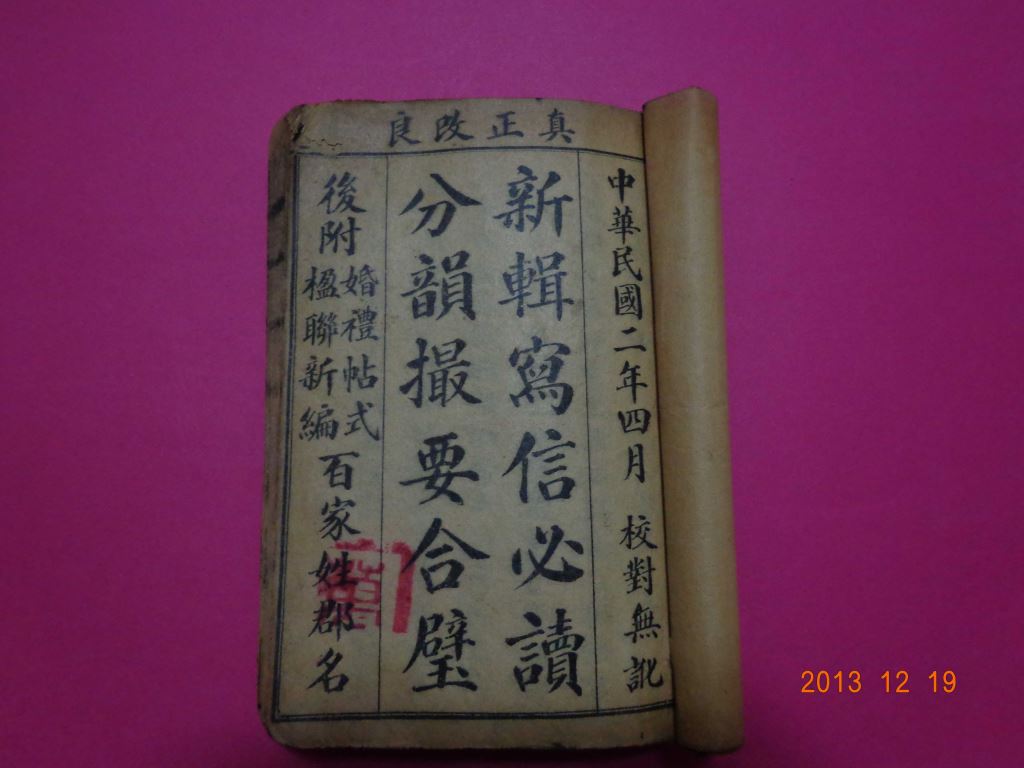 真正改良
中華民國二年四月 校對無訛
新輯寫信必讀
分韻撮要合璧
後附
婚禮帖式
楹聯新編
百家姓郡名
2013 12 19